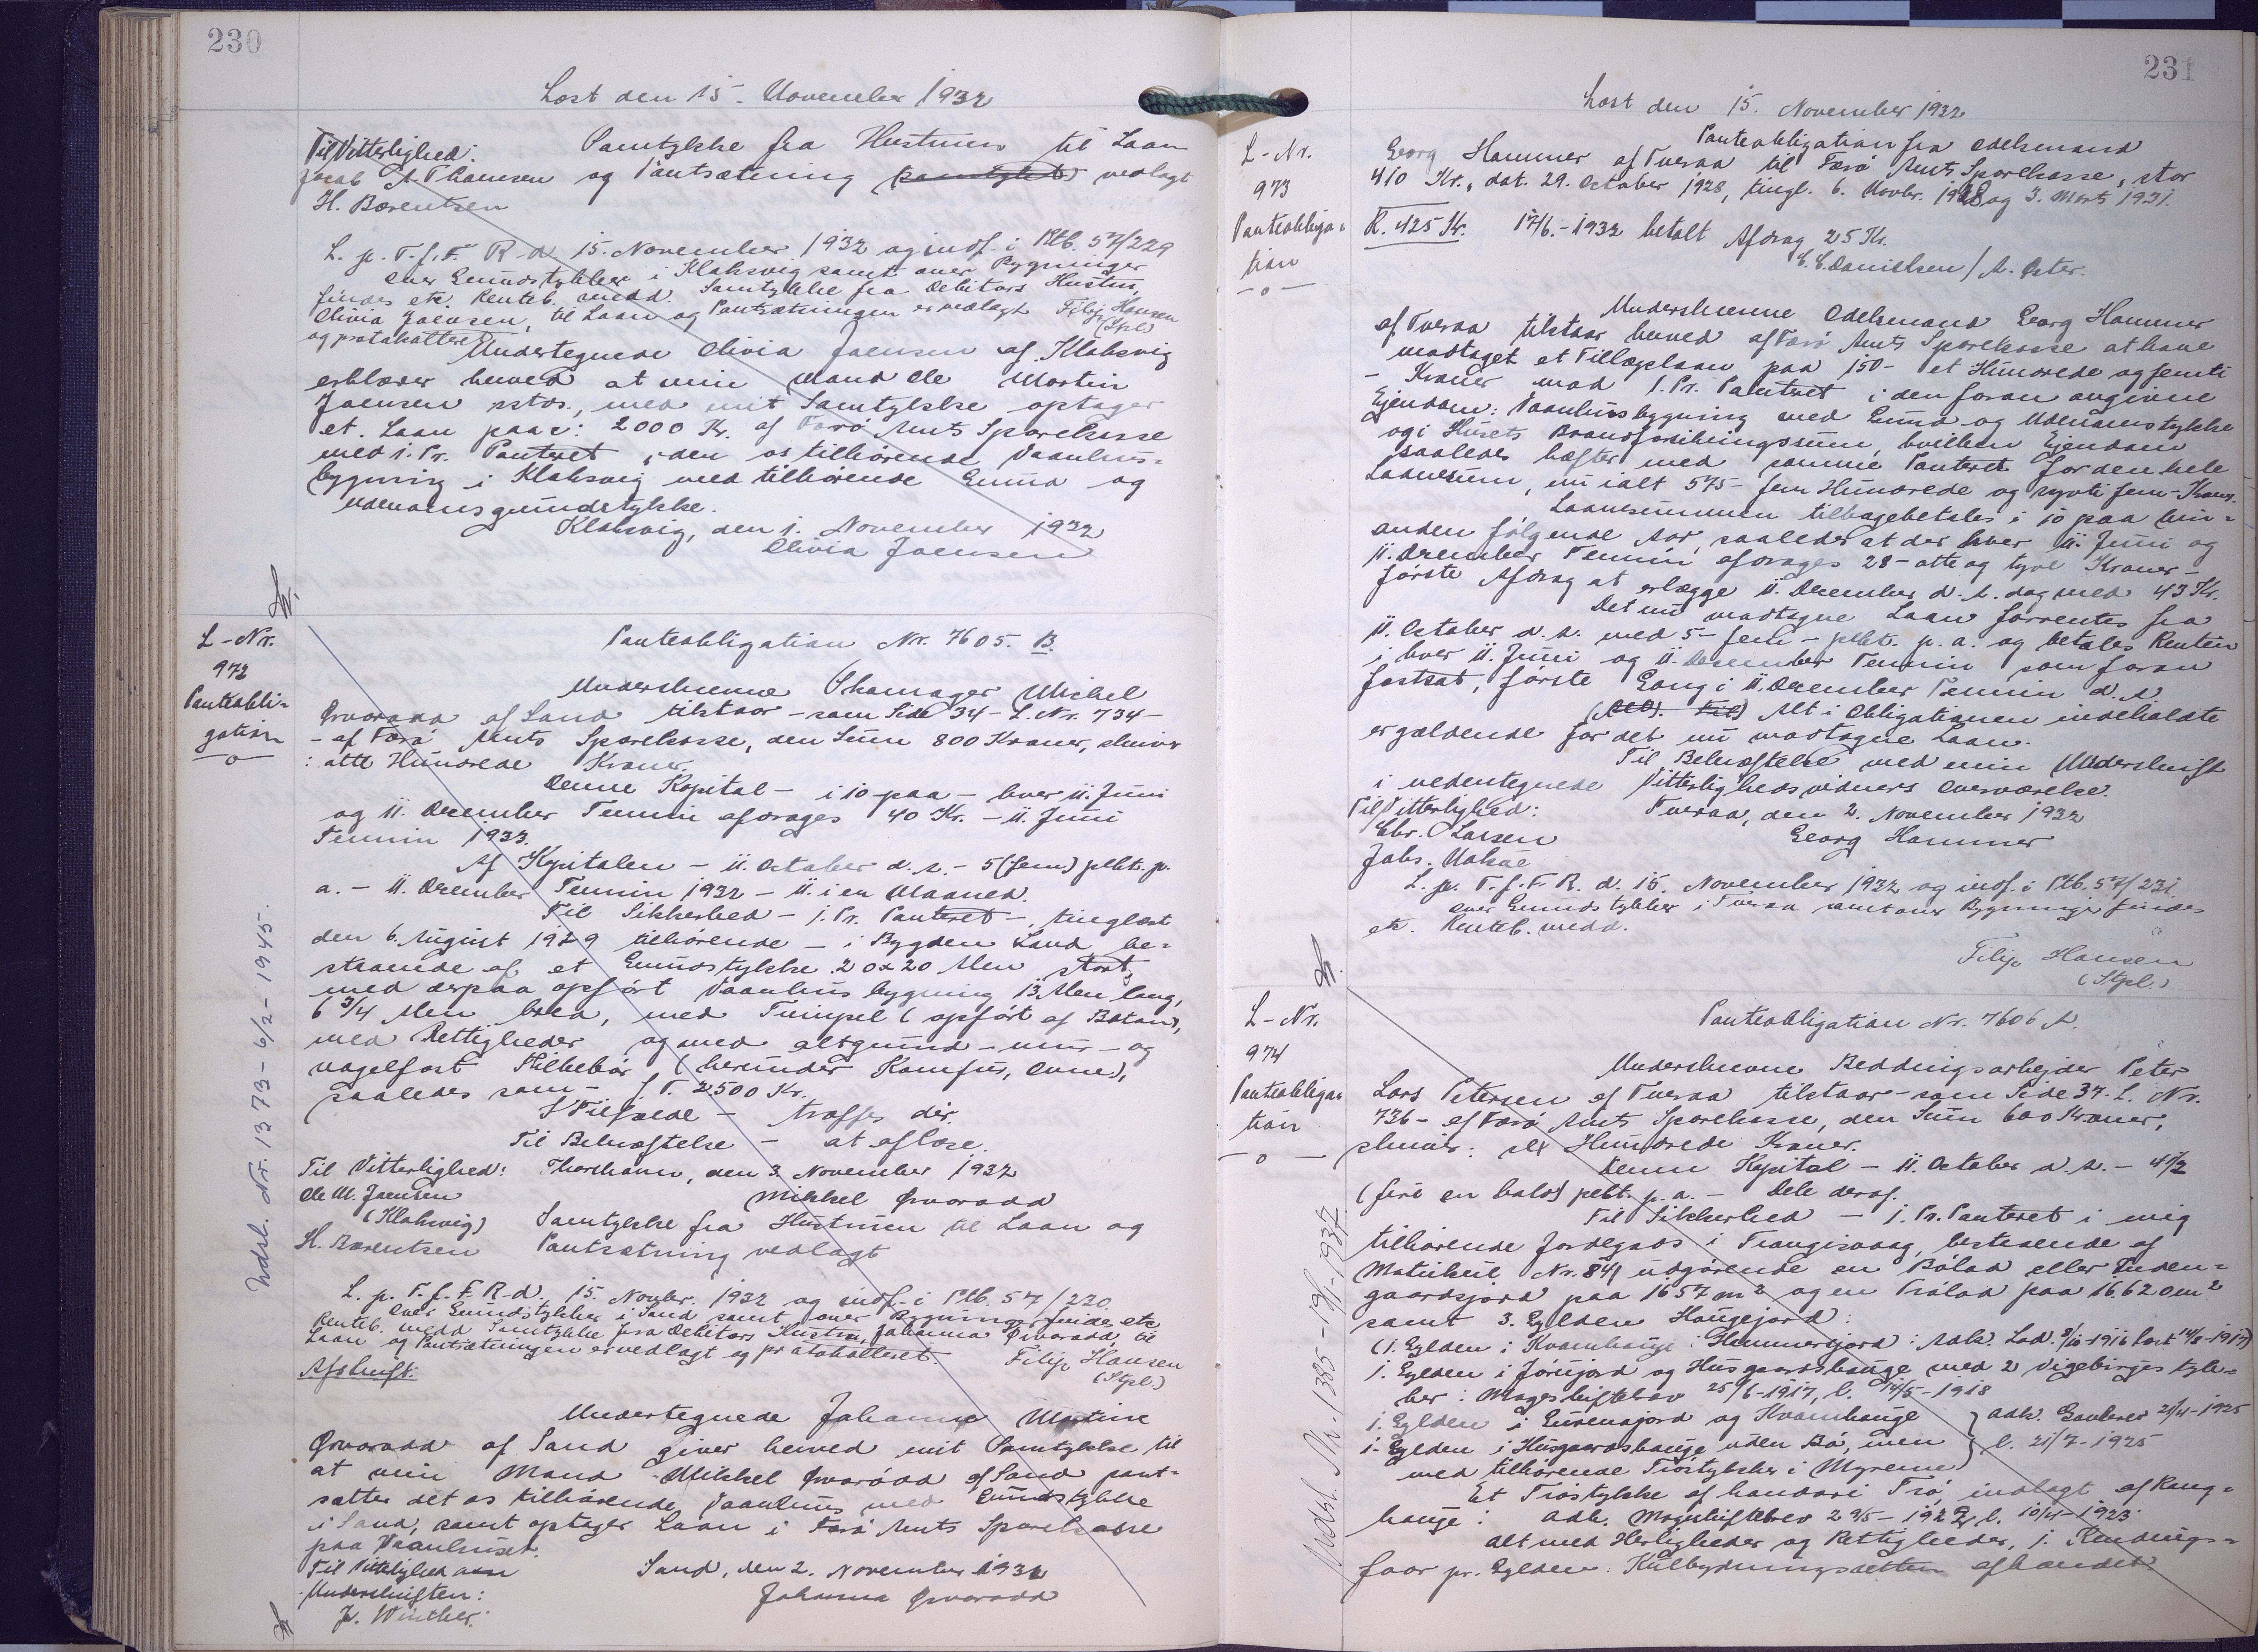 230
Læst den 15. November 1932
Til Vitterlighed: Samtykke fra Hustruen til Laan
Jacob A. Thomsen og Pantsætning (samtykket) vedlagt
H. Bærentsen
L. p. T. f. F. R. d. 15. November 1932 og indf. i Ptb. 57/229
over Grundstykker i Klaksvig samt over Bygninger
findes etc. Renteb. medd. Samtykke fra Debitors Hustru,
Olivia Joensen, til Laan og Pantsætningen er vedlagt Filip Hansen
og protokolleret. (Stpl.)
Undertegnede Olivia Joensen af Klaksvig
erklærer herved at min Mand Ole Martin
Joensen sstds., med mit Samtykke optager
et Laan paa: 2000 Kr. af Færø Amts Sparekasse
med 1. Pr. Panteret i den os tilhørende Vaanhus-
bygning i Klaksvig med tilhørende Grund og
udenomsgrundstykke.
Klaksvig, den 1. November 1932
Olivia Joensen
L-Nr.
972
Panteobli-
gation
-o-
Panteobligation Nr. 7605. B.
Underskrevne Skomager Michel
Ørvaradd af Sand tilstaar - som Side 34 - L. Nr. 734 -
- af Færø Amts Sparekasse, den Sum 800 Kroner, skriver
: otte Hundrede Kroner.
Denne Kapital - i 10 paa - hver 11. Juni
og 11. December Termin afdrages 40 Kr. - 11. Juni
Termin 1933.
Af Kapitalen - 11. October d. A. - 5 (fem) pCt. p.
a. - 11. December Termin 1932 - 11. i en Maaned.
Til Sikkerhed - 1. Pr. Panteret - tinglæst
den 6. August 1929 tilhørende - i Bygden Sand be-
staaende af et Grundstykke 20 x 20 Alen stort,
med derpaa opført Vaanhusbygning 13 Alen lang,
6 3/4 Alen bred, med Timpel (opført af Beton),
med Rettigheder og med altgrund - mur - og
nagelfast Tilbehør (herunder Komfur, Ovne),
saaledes som - f. T. 2500 Kr.
I Tilfælde - træffes dèr.
Til Bekræftelse - at aflæse.
Til Vitterlighed: Thorshavn, den 3. November 1932
Ole M. Joensen Mikkel Ørvaradd
(Klaksvig) Samtykke fra Hustruen til Laan og
H. Bærentsen Pantsætning vedlagt
L. p. T. f. F. R. d. 15. Novbr. 1932 og indf. i Ptb. 57/230
over Grundstykker i Sand samt over Bygninger findes etc
Renteb. medd. Samtykke fra Debitors Hustru, Johanna Ørvaradd til
Laan og Pantsætningen er vedlagt og protokolleret. Filip Hansen
Afskrift: (Stpl.)
Undertegnede Johanne Martine
Ørvaradd af Sand giver herved mit Samtykke til
at min Mand Mikkel Ørvarødd af Sand pant-
sætter det os tilhørende Vaanhus med Grundstykke
i Sand, samt optager Laan i Færø Amts Sparekasse
paa Vaanhuset.
Til Vitterlighed om Sand, den 2. November 1932
Underskriften: Johanna Ørvaradd
P. Winther.
Udsl. Nr. 1373 - 6/2 - 1945.
231
Læst den 15. November 1932
L-Nr.
973
Panteobliga-
tion
-o-
Panteobligation fra Odelsmand
Georg Hammer af Tveraa til Færø Amts Sparekasse, stor
410 Kr., dat. 29. October 1928, tingl. 6. Novbr. 1928 og 3. Marts 1931.
R. 425 Kr. 17/6.-1932 betalt Afdrag 25 Kr.
C. C. Danielsen / A. Øster.
Underskrevne Odelsmand Georg Hammer
af Tveraa tilstaar herved af Færø Amts Sparekasse at have
modtaget et Tillægslaan paa 150 - et Hundrede og femti
- Kroner mod 1. Pr. Panteret i den foran angivne
Ejendom: Vaanhusbygning med Grund og Udenomsstykke
og i Husets Brandforsikringssum, hvilken Ejendom
saaledes hæfter med samme Panteret for den hele
Laanesum, nu ialt 575 - fem Hundrede og syvti fem - Kroner.
Laanesummen tilbagebetales i 10 paa hin-
anden følgende Aar, saaledes at der hver 11. Juni og
11. December Termin afdrages 28 - otte og tyve Kroner -
første Afdrag at erlægge 11. December d. A. dog med 43 Kr.
Det nu modtagne Laan forrentes fra
11. October d. A. med 5 - fem - pCt. p. a. og betales Renten
i hver 11. Juni og 11. December Termin som foran
fastsat, første Gang i 11. December Termin d. A.
Alt i Obligationen indeholdte
er gældende for det nu modtagne Laan.
Til Bekræftelse med min Underskrift
i nedentegnede Vitterlighedsvidners Overværelse.
Til Vitterlighed: Tveraa, den 2. November 1932
Chr. Larsen Georg Hammer
Johs. Vahsøe
L. p. T. f. F. R. d. 15. November 1932 og indf. i Ptb. 57/231
over Grundstykker i Tveraa samt over Bygninger findes
etc. Renteb. medd.
Filip Hansen
(Stpl.)
L-Nr.
974
Panteobliga-
tion
-o-
Panteobligation Nr. 7606 A.
Underskrevne Beddingsarbejder Peter
Lars Petersen af Tveraa tilstaar - som Side 37. L. Nr.
736 - af Færø Amts Sparekasse, den Sum 600 Kroner,
skriver: sex Hundrede Kroner.
Denne Kapital - 11. October d. A. - 4 1/2
(fire en halv) pCt. p. a. - Dele deraf.
Til Sikkerhed - 1. Pr. Panteret i mig
tilhørende Jordegods i Trangisvaag, bestaaende af
Matrikul Nr. 841 udgørende en Bølod eller Inden-
gaardsjord paa 1657 m2 og en Trølod paa 16.620 m2
samt 3. Gylden Haugejord:
(1. Gylden i Kvamhauge i Hammersjord: Adk. Lod. 9/10-1916 læst 14/5-1917)
1. Gylden i Jørujord og Husgaardshauge med 2 Vigebirgsstyk-
ker: Mageskiftebrev 25/6-1917, l. 14/5-1918
1. Gylden i Eirenajord og Kvamhauge } adk. Gavebrev 21/4-1925
1. Gylden i Husgaardshauge uden Bø, men } l. 21/7-1925
med tilhørende Trøstykker i Myrene
Et Trøstykke af handari Trø, indlagt af Rang-
hauge: Adk. Mageskiftebrev 29/5-1922, l. 10/4-1923.
alt med Herligheder og Rettigheder, 1. Rindings-
faar pr. Gylden. Kulbrydningsretten afhændet.
Udsl. Nr. 1385 - 19/1-1937